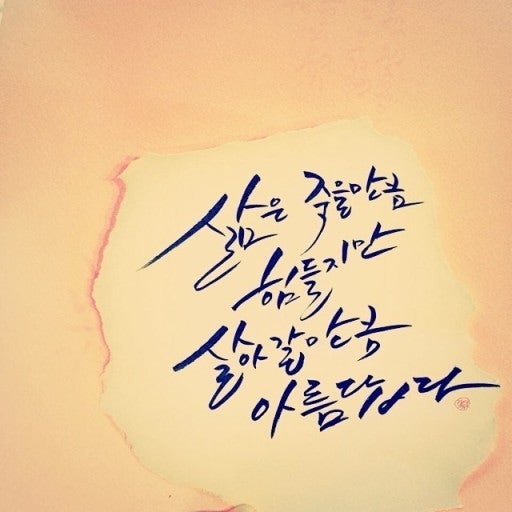 삶은 죽을만큼
힘들지만
살아갈만큼
아름답다